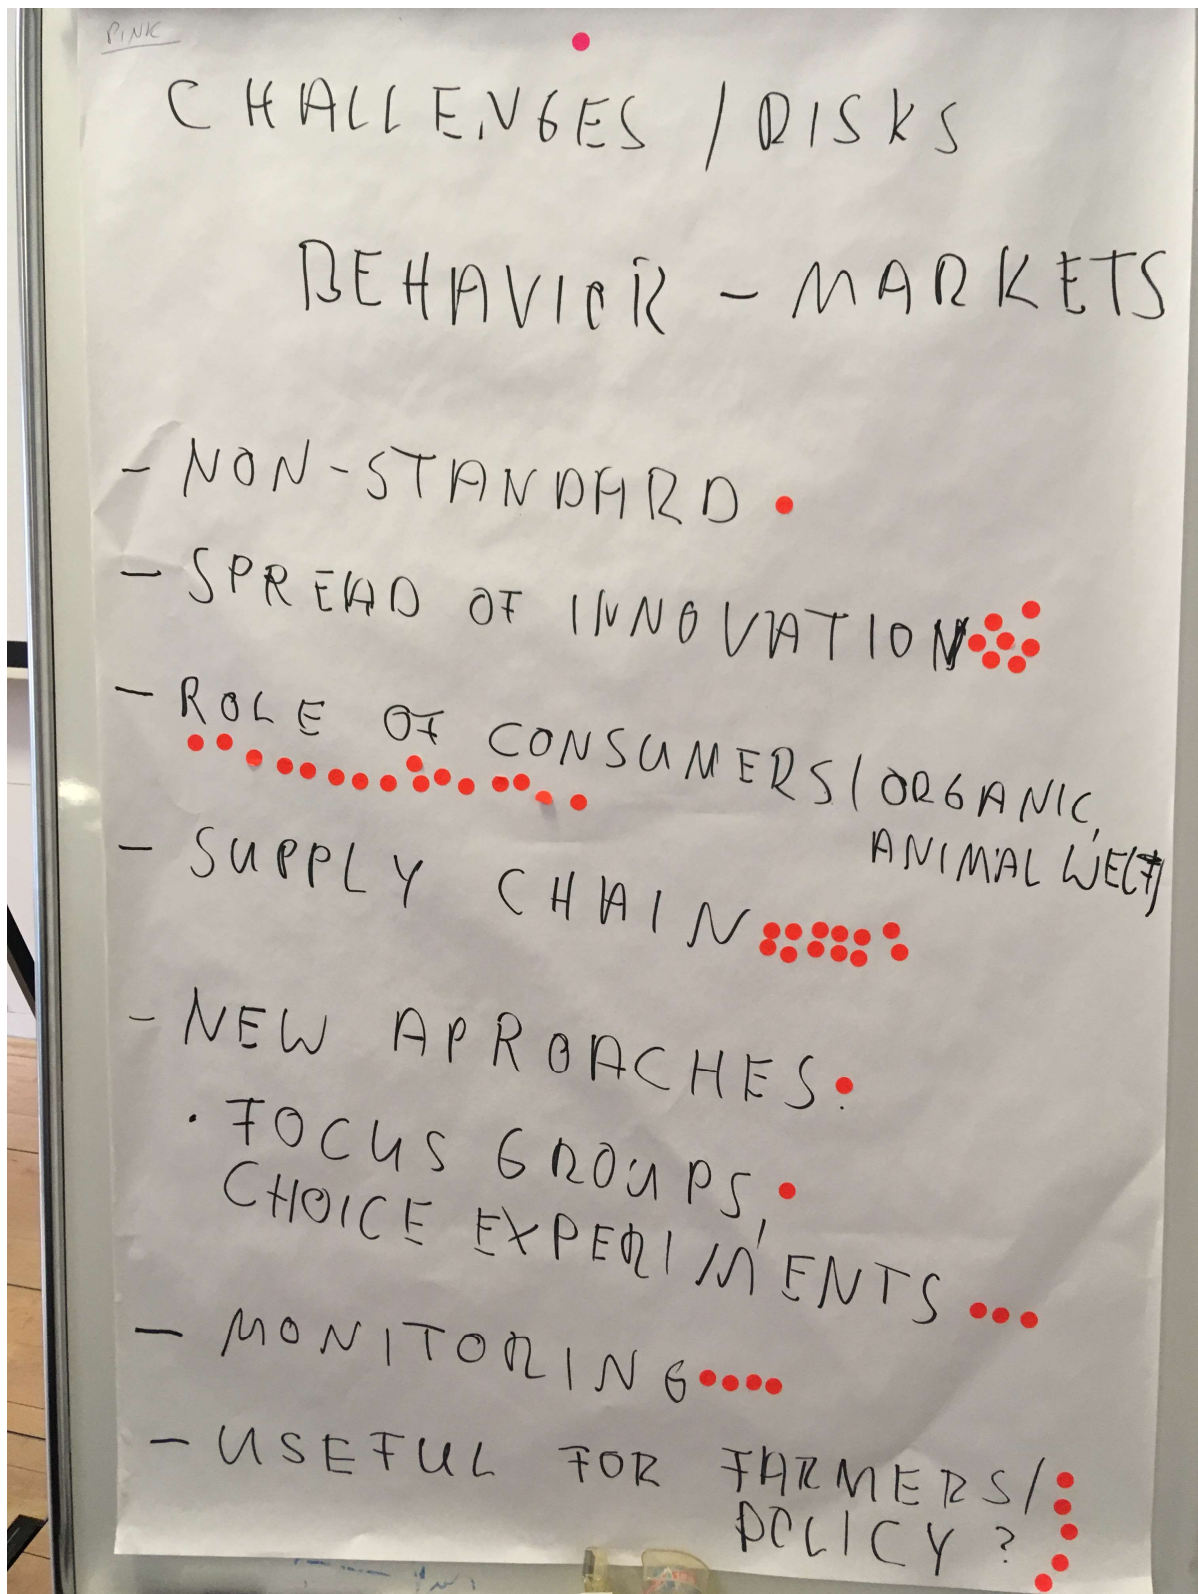 PINK
CHALLENGES / RISKS
BEHAVIOR - MARKETS
- NON-STANDARD
- SPREAD OF INNOVATION
- ROLE OF CONSUMERS/ORGANIC,
ANIMAL WELF
- SUPPLY CHAIN
- NEW APROACHES:
· FOCUS GROUPS,
CHOICE EXPERIMENTS
- MONITORING
- USEFUL FOR FARMERS/
POLICY?